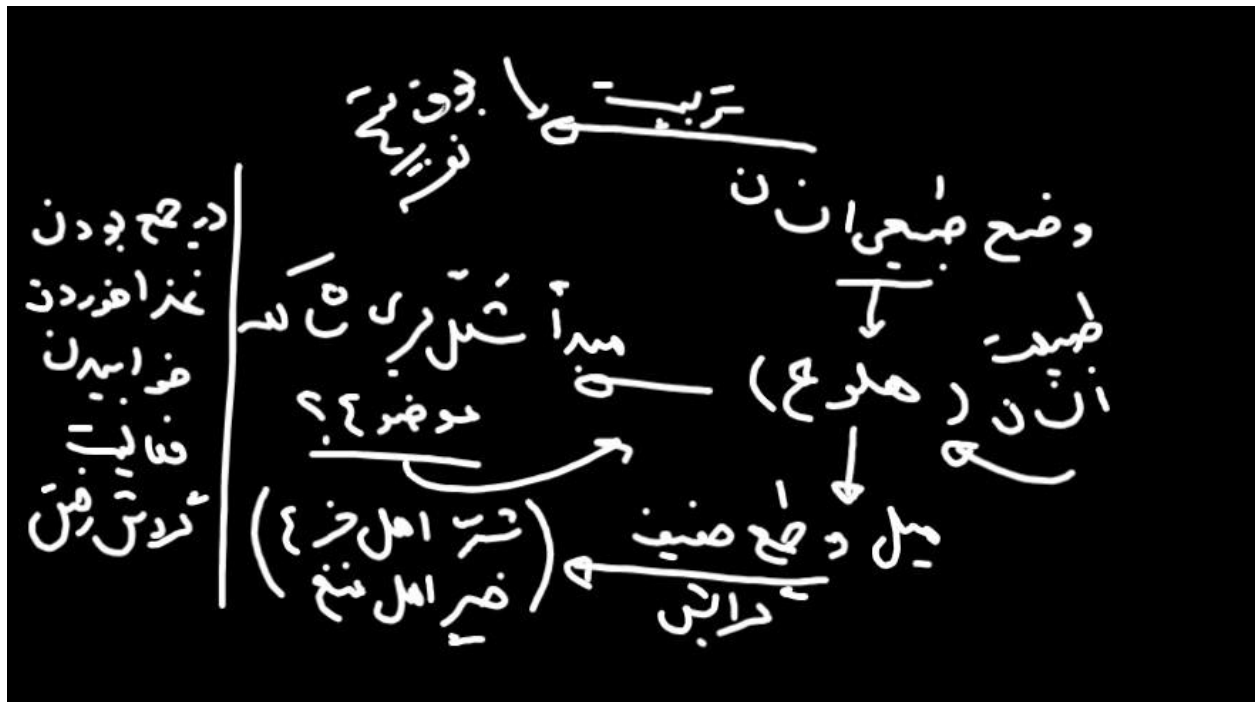 تربیت
وضع طبیعی انسان
طبیعت
انسان (هلوع)
مبدأ شکل‌گیری
موضوع؟
میل و طمع ضعیف
گرایش
(شرّ اهل جزع
خیر اهل منع)
در جمع بودن
غذا خوردن
خوابیدن
فعالیت
گردش رفتن